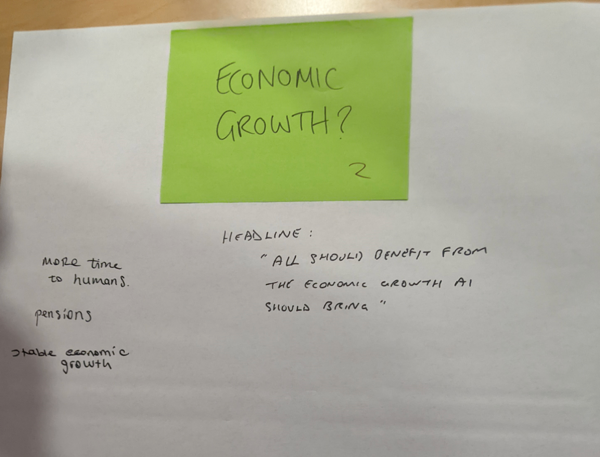 ECONOMIC
GROWTH?
2
HEADLINE:
"ALL SHOULD BENEFIT FROM
THE ECONOMIC GROWTH AI
SHOULD BRING"
more time
to humans.
pensions
stable economic
growth